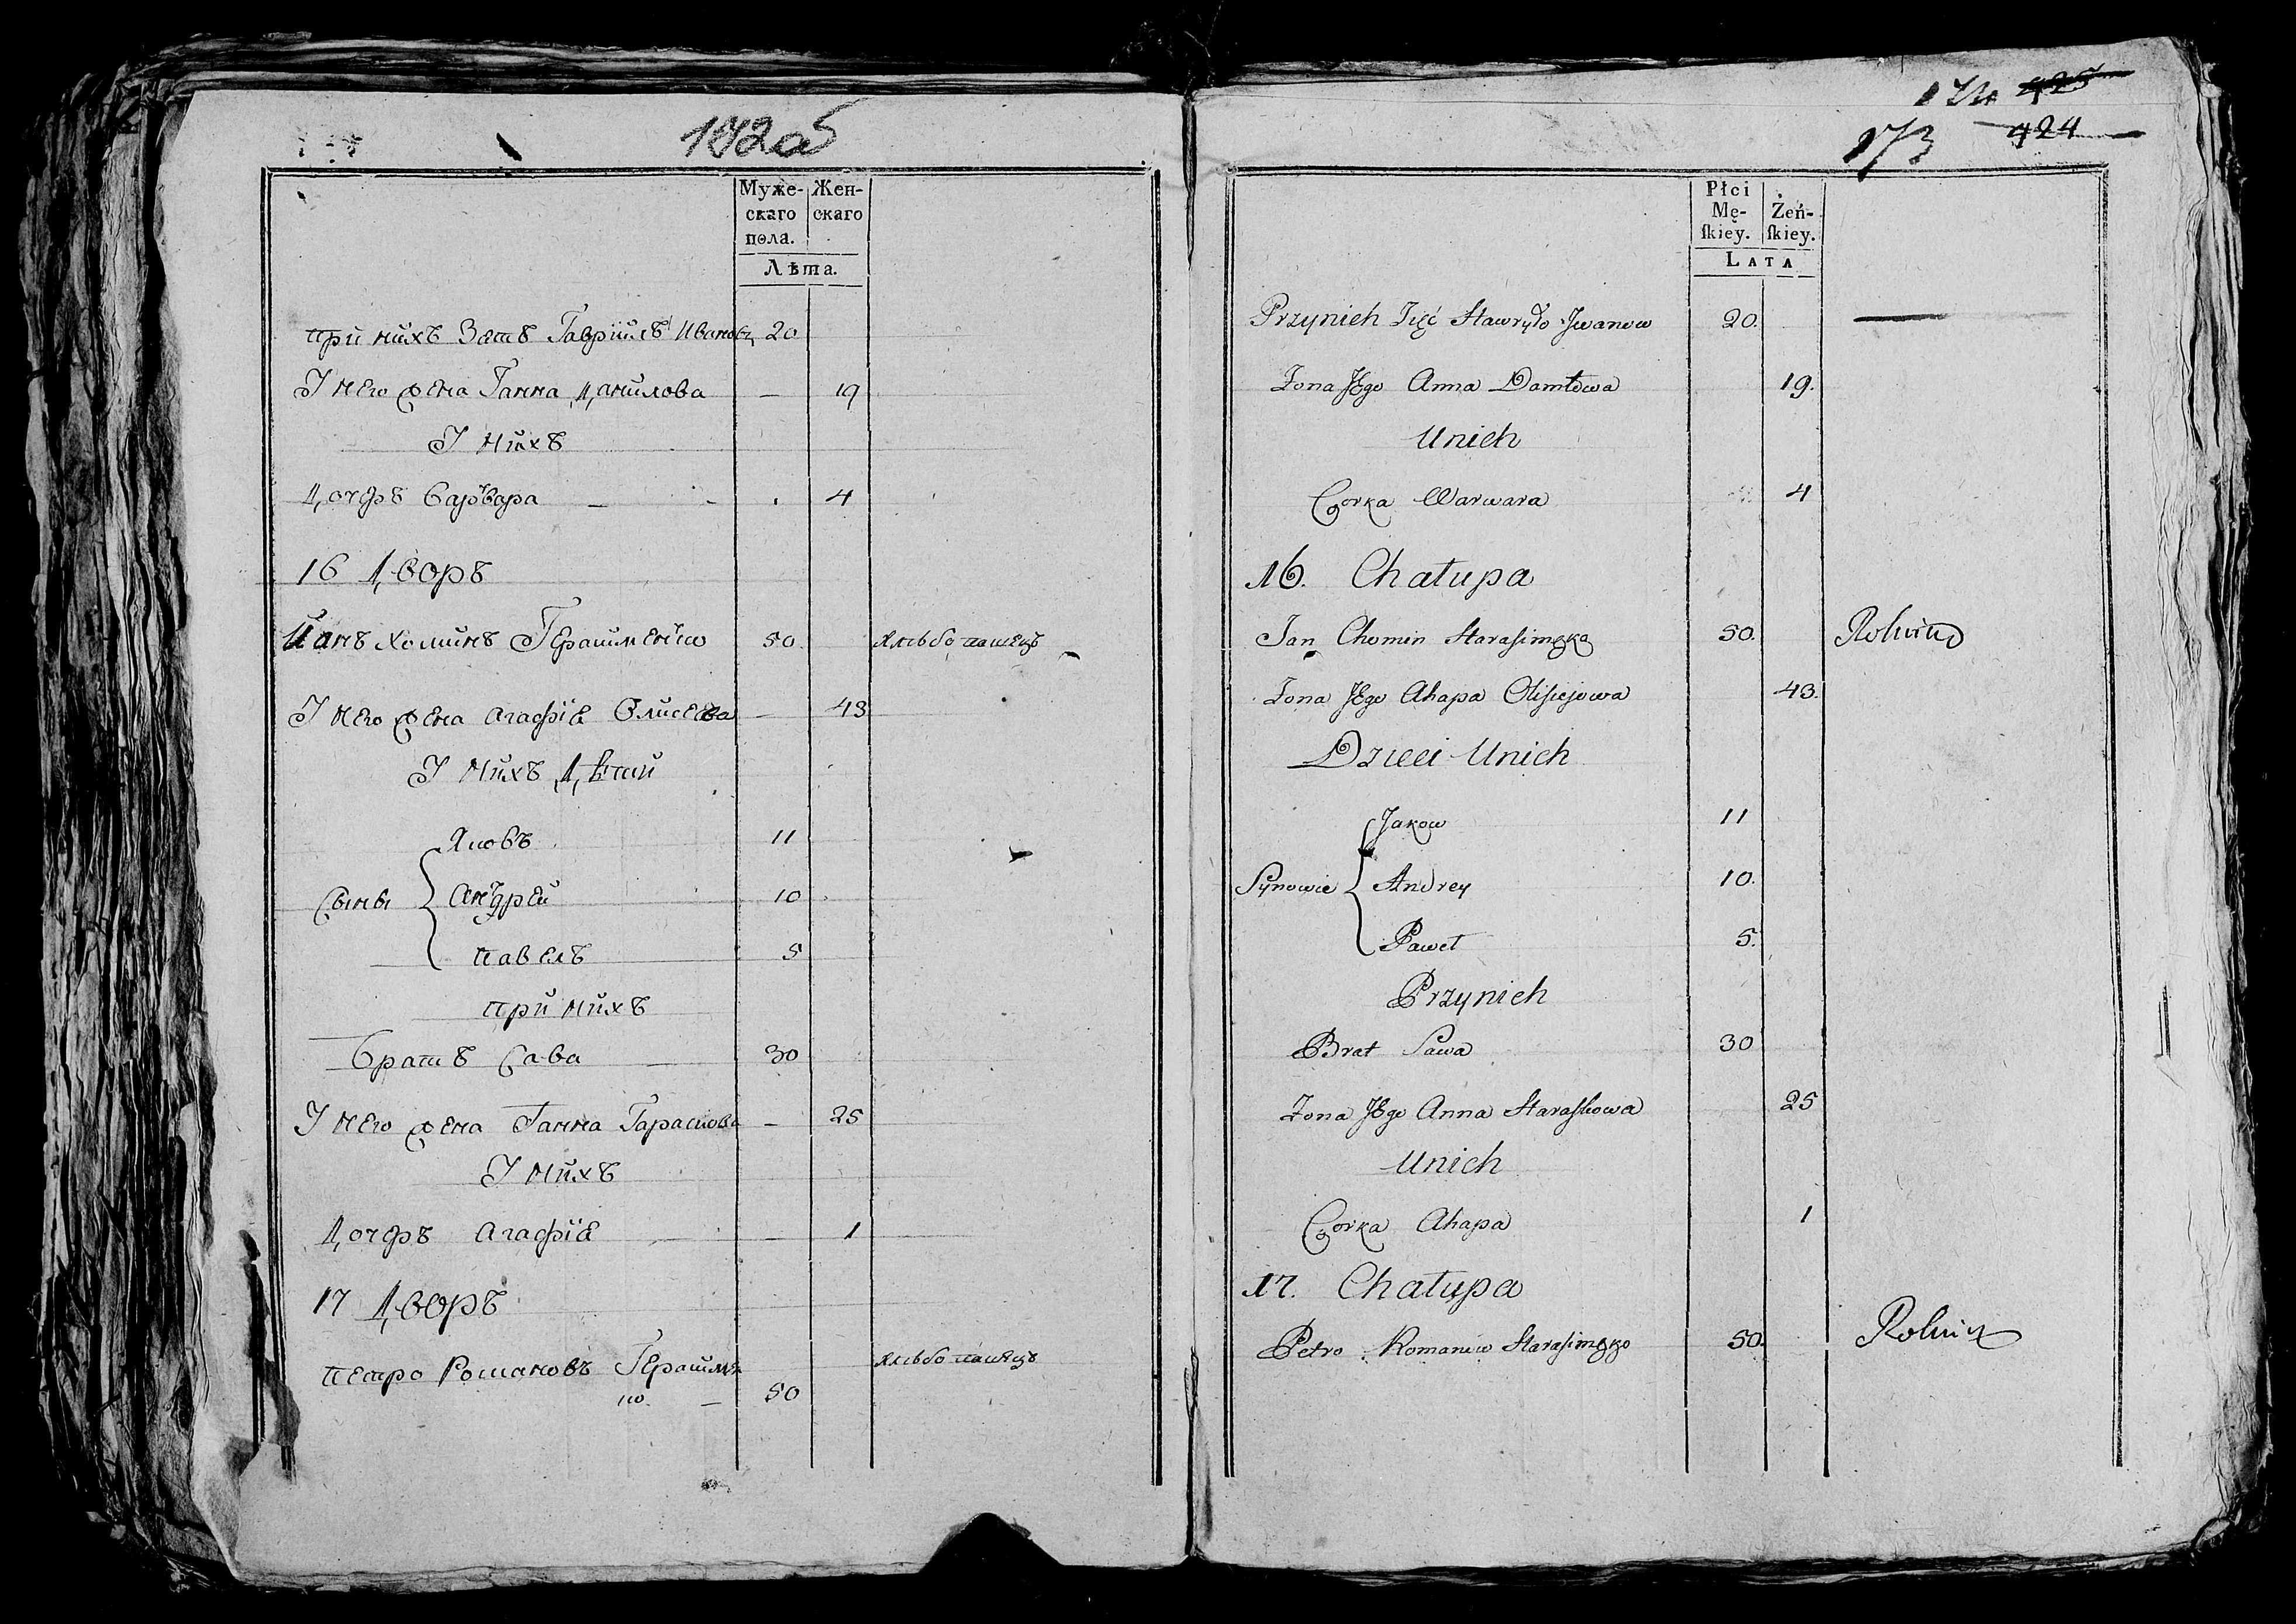 172об
Муже-
скаго
пола.
Жен-
скаго
Лѣта.
при нихъ Зять Гавріилъ Ивановъ 20
У него жена Ганна Данилова — 19
У нихъ
Дочерь Варвара — 4
16 Дворъ
Иванъ Хоминъ Герасименко 50 хлѣбопашецъ
У него жена Агафія Олисеева — 43
У нихъ Дѣти
Яковъ 11
Сыны { Андрей 10
Павелъ 5
при нихъ
Братъ Сава 30
У него жена Ганна Тараскова — 25
У нихъ
Дочерь Агафія — 1
17 Дворъ
Петро Романовъ Герасимен хлѣбопашецъ
ко — 50
174 425
173 424
Płci
Mę-
ſkiey.
Żeń-
ſkiey.
LATA
Przynich Zięć Hawryło Jwanow 20.
Zona JEgo Anna Daniłowa 19.
Unich
Corka Warwara 4
16. Chałupa
Jan Chomin Harasimęka 50. Rolnik
Zona JEgo Ahapa Olisiejowa 43.
Dzieci Unich
Jakow 11
Synowie { Andrey 10.
Paweł 5.
Przynich
Brat Sawa 30
Zona JEgo Anna Haraſkowa 25
Unich
Corka Ahapa 1
17. Chałupa
Petro Romanow Harasimęko 50. Rolnik